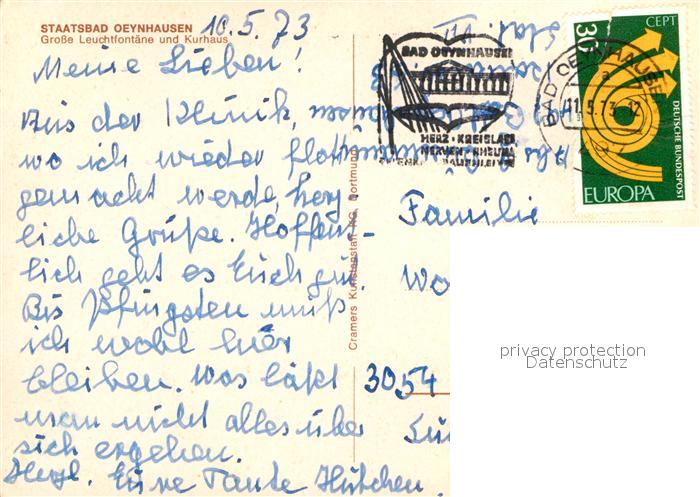 STAATSBAD OEYNHAUSEN
Große Leuchtfontäne und Kurhaus
10.5.73
Meine Lieben!
Aus der Klinik,
wo ich wieder flott
gemacht werde, herz-
liche Grüße. Hoffent-
lich geht es Euch gut.
Bis Pfingsten muß
ich wohl hier
bleiben. Was läßt
man nicht alles über
sich ergehen.
Herzl. Eure Tante Hütchen.
Cramers Kunstanstalt KG, Dortmund
BAD OEYNHAUSEN
HERZ · KREISLAUF
NERVEN · RHEUMA
BAD OEYNHAUSEN
a
11.5.73-12
36
CEPT
DEUTSCHE BUNDESPOST
EUROPA
Familie
3054
privacy protection
Datenschutz